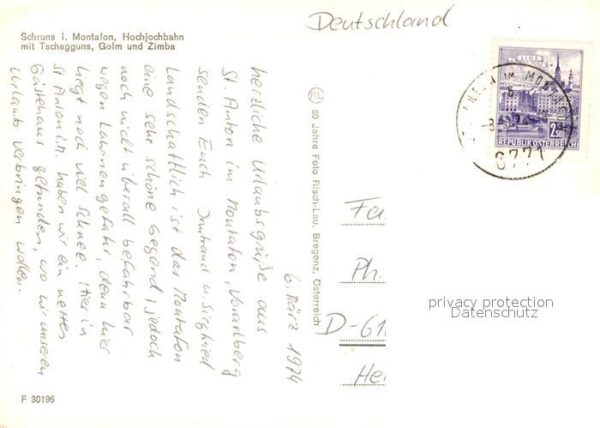 Schruns i. Montafon, Hochjochbahn
mit Tschagguns, Golm und Zimba
Deutschland
6. März 1974
herzliche Urlaubsgrüße aus
St. Anton im Montafon, Vorarlberg
senden Euch Irmtraud u. Siegfried
Landschaftlich ist das Montafon
eine sehr schöne Gegend, jedoch
noch nicht überall befahrbar
wegen Lawinengefahr, denn hier
liegt noch viel Schnee. Hier in
St. Anton i.M. haben wir ein nettes
Gästehaus gefunden, wo wir unseren
Urlaub verbringen wollen.
80 Jahre Foto Risch-Lau, Bregenz, Österreich
ANTON IM MONTAFON
6771
LINZ
2.50
REPUBLIK ÖSTERREICH
Fa
Ph.
D-61
He
privacy protection
Datenschutz
F 30196